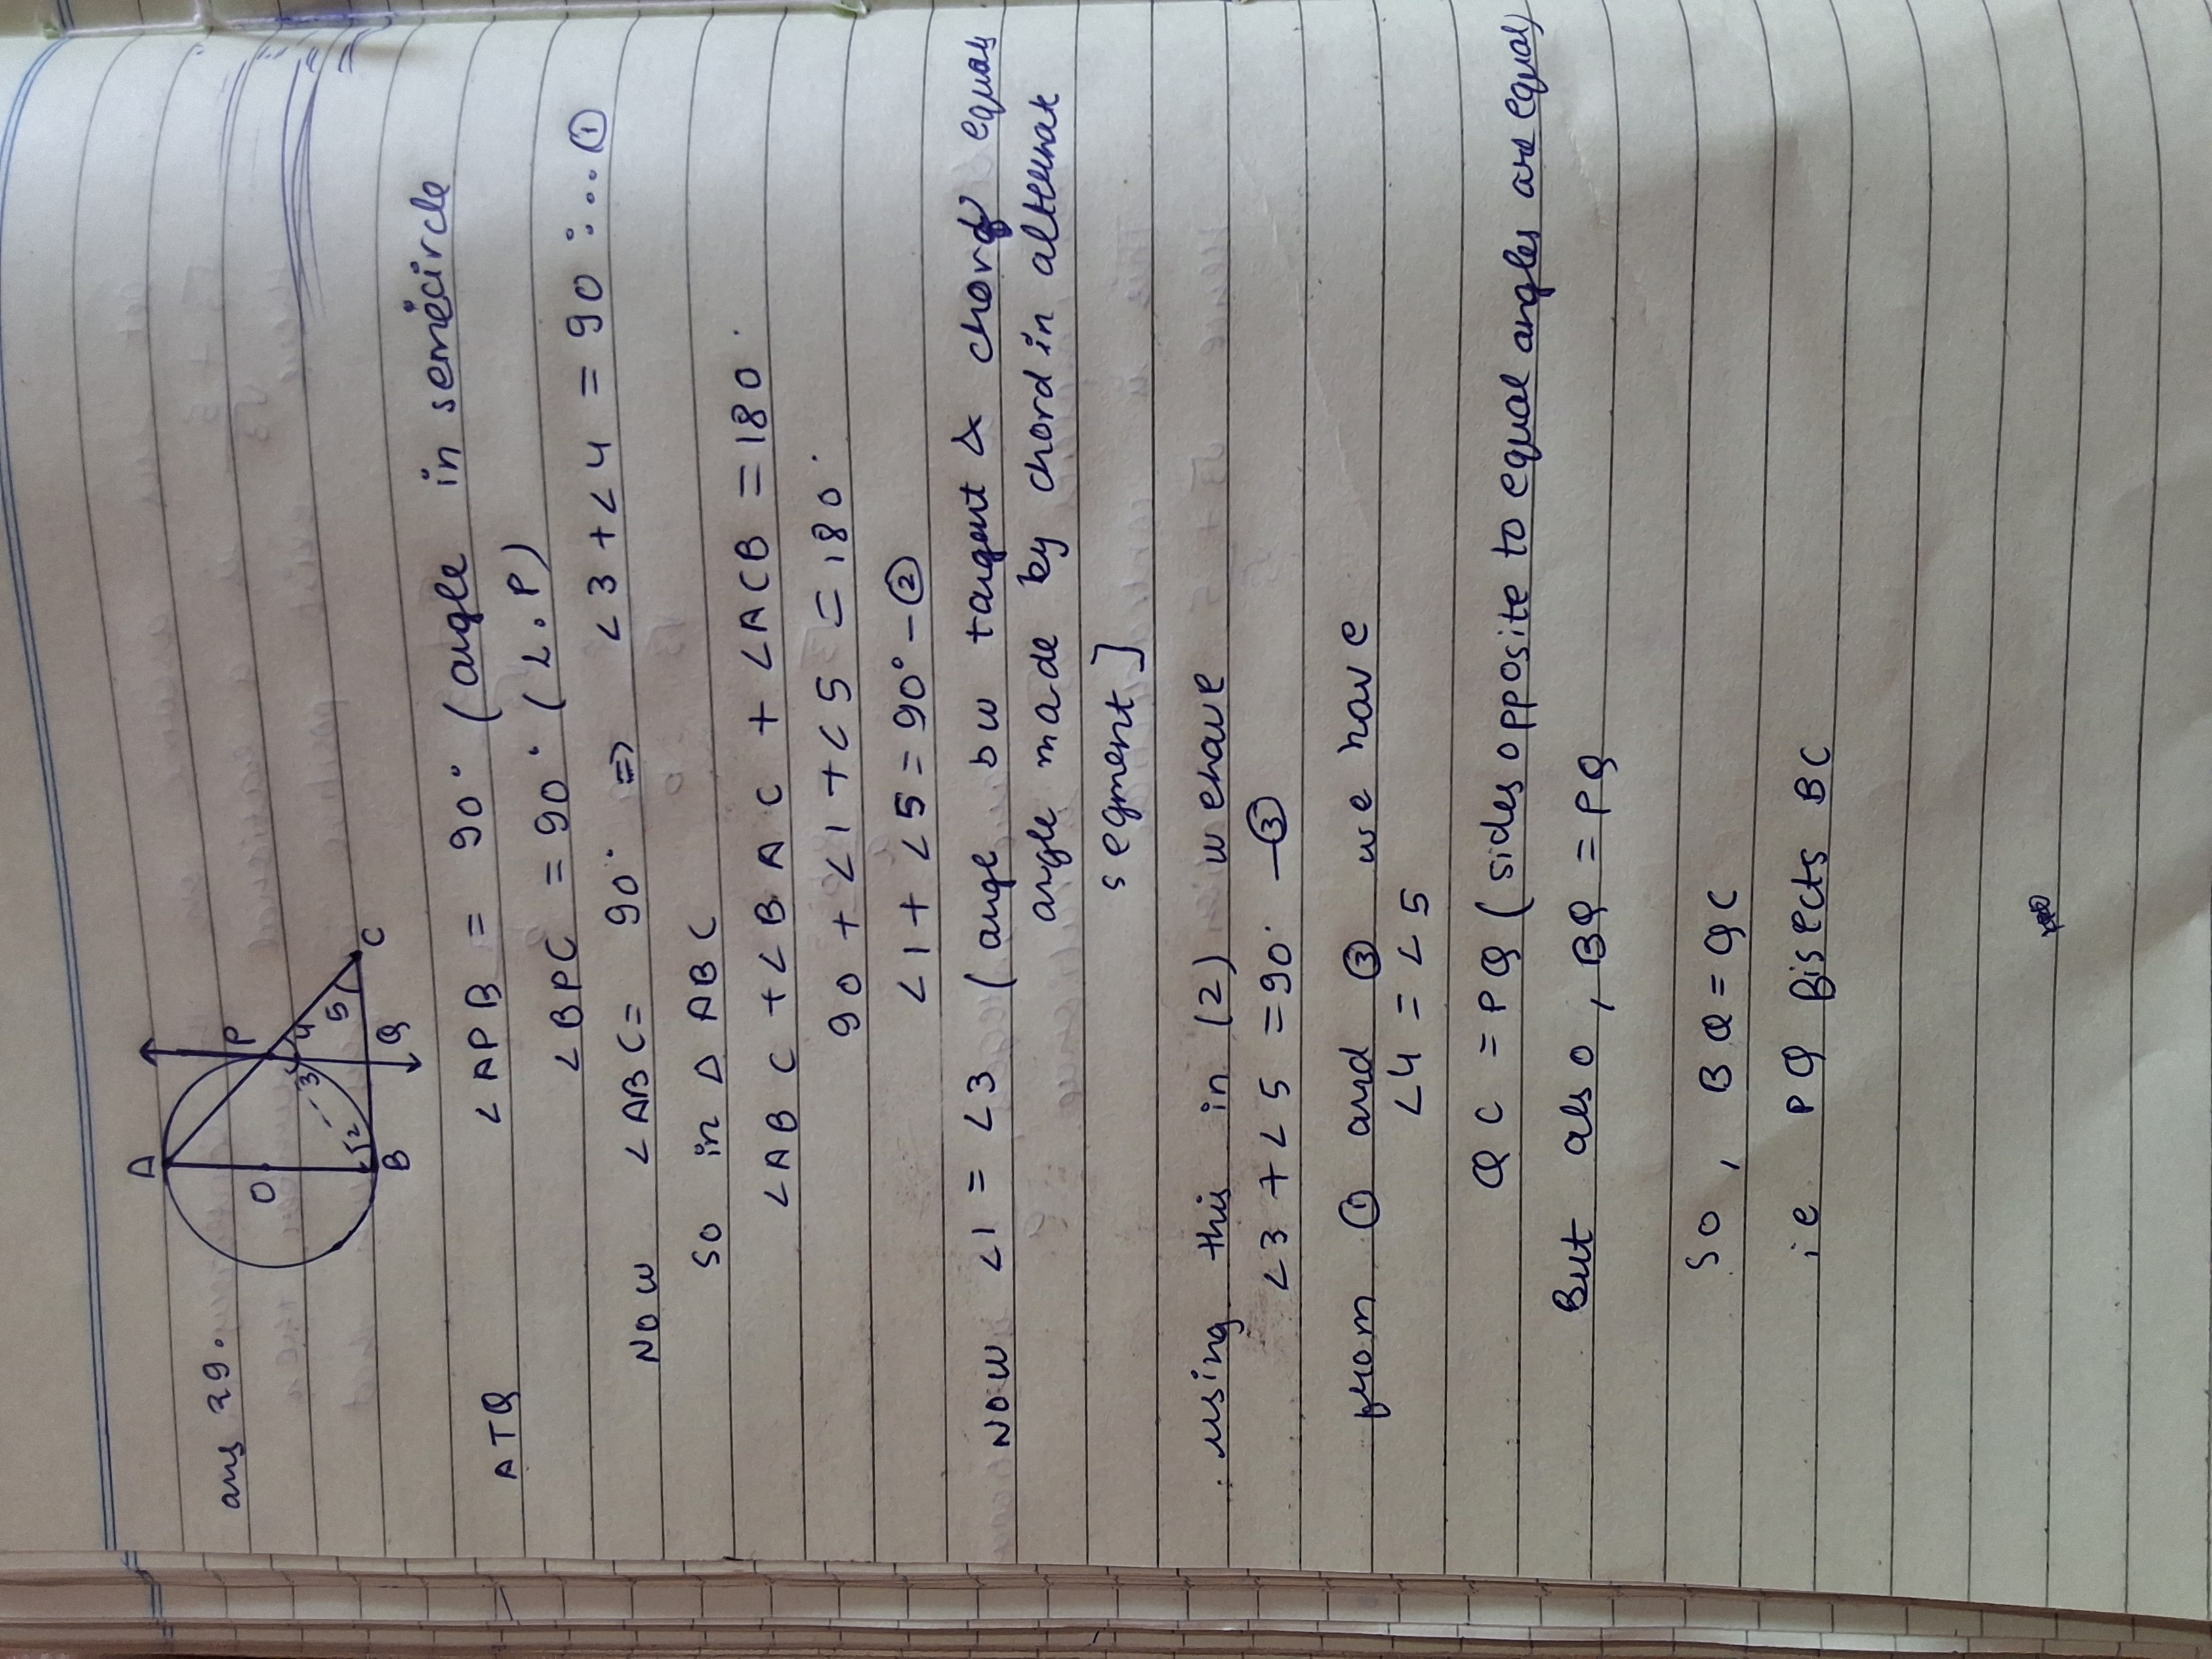 ans 29.
A
P
O
3
4
2
5
B
Q
C
ATQ
∠APB = 90° (angle in semicircle
∠BPC = 90° (L.P)
NOW ∠ABC = 90° => ∠3+∠4 = 90 :...①
SO in Δ ABC
∠ABC +∠BAC + ∠ACB = 180
90 + ∠1 + ∠5 = 180
∠1 + ∠5 = 90° - ②
NOW ∠1 = ∠3 (angle bw tangent & chord equals
angle made by chord in alternate
segment]
using this in (2) we have
∠3 + ∠5 = 90 - ③
from ① and ③ we have
∠4 = ∠5
QC = PQ (sides opposite to equal angles are equal)
But also, BQ = PQ
SO, BQ = QC
ie PQ Bisects BC